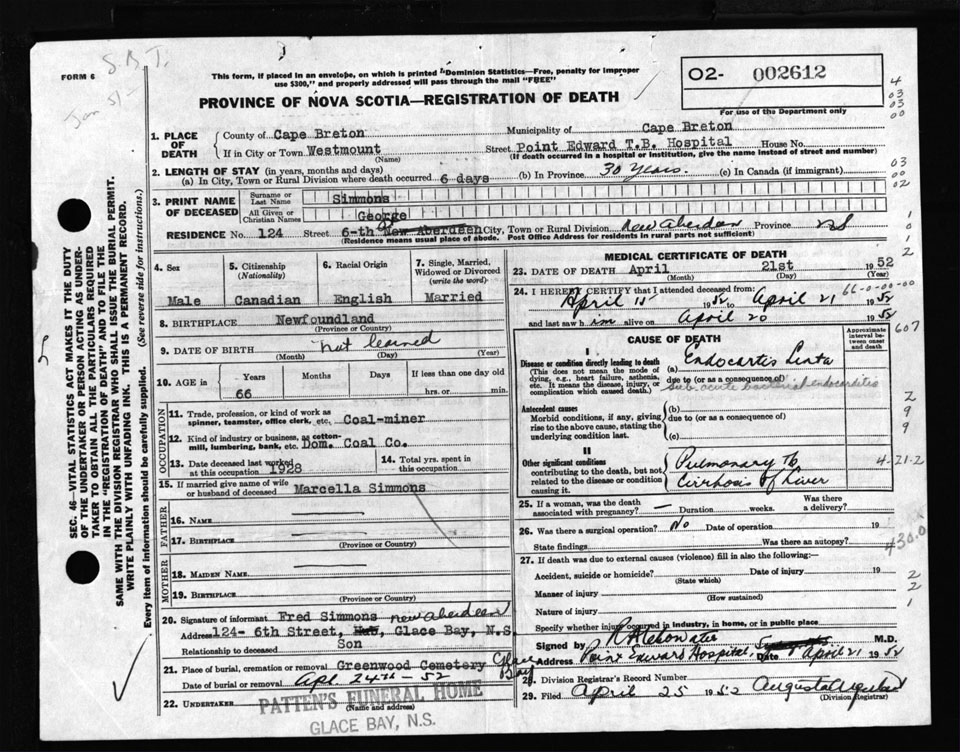 S.B.T.
FORM 6
This form, if placed in an envelope, on which is printed "Dominion Statistics—Free, penalty for improper
use $300," and properly addressed will pass through the mail "FREE"
PROVINCE OF NOVA SCOTIA—REGISTRATION OF DEATH
O2- 002612
For use of the Department only
1. PLACE OF DEATH
County of Cape Breton Municipality of Cape Breton
If in City or Town Westmount Street Point Edward T.B. Hospital House No.
(Name) (If death occurred in a hospital or institution, give the name instead of street and number)
2. LENGTH OF STAY (in years, months and days)
(a) In City, Town or Rural Division where death occurred 6 days (b) In Province 30 Years. (c) In Canada (if immigrant)
3. PRINT NAME OF DECEASED
Surname or Last Name Simmons
All Given or Christian Names George
RESIDENCE No. 124 Street 6-th New Aberdeen City, Town or Rural Division New Aberdeen Province NS
(Residence means usual place of abode. Post Office Address for residents in rural parts not sufficient)
4. Sex Male
5. Citizenship (Nationality) Canadian
6. Racial Origin English
7. Single, Married, Widowed or Divorced (write the word) Married
8. BIRTHPLACE Newfoundland
(Province or Country)
9. DATE OF BIRTH not learned
(Month) (Day) (Year)
10. AGE in Years Months Days If less than one day old
66 hrs. or min.
OCCUPATION
11. Trade, profession, or kind of work as
spinner, teamster, office clerk, etc. Coal-miner
12. Kind of industry or business, as cotton-
mill, lumbering, bank, etc. Dom. Coal Co.
13. Date deceased last worked
at this occupation 1928
14. Total yrs. spent in
this occupation
15. If married give name of wife
or husband of deceased Marcella Simmons
FATHER
16. NAME
17. BIRTHPLACE
(Province or Country)
MOTHER
18. MAIDEN NAME
19. BIRTHPLACE
(Province or Country)
20. Signature of informant Fred Simmons New Aberdeen
Address 124- 6th Street, Glace Bay, N.S.
Relationship to deceased Son
21. Place of burial, cremation or removal Greenwood Cemetery Glace Bay
Date of burial or removal Apl 24th - 52
22. UNDERTAKER PATTEN'S FUNERAL HOME
(Name and address)
GLACE BAY, N.S.
MEDICAL CERTIFICATE OF DEATH
23. DATE OF DEATH April 21st 1952
(Month) (Day) (Year)
24. I HEREBY CERTIFY that I attended deceased from:
April 15 1952 to April 21 1952
66-0-00-00
and last saw him alive on April 20 1952
CAUSE OF DEATH
Approximate interval between onset and death
I
Disease or condition directly leading to death
(This does not mean the mode of
dying, e.g., heart failure, asthenia,
etc. It means the disease, injury, or
complication which caused death.)
(a) Endocartis Lenta
due to (or as a consequence of)
sub acute bacterial endocarditis
Antecedent causes
Morbid conditions, if any, giving
rise to the above cause, stating the
underlying condition last.
(b)
due to (or as a consequence of)
(c)
II
Other significant conditions
contributing to the death, but not
related to the disease or condition
causing it.
Pulmonary Tb
Cirrhosis of Liver
25. If a woman, was the death
associated with pregnancy? — Duration weeks. Was there a delivery?
26. Was there a surgical operation? No Date of operation 19
State findings Was there an autopsy?
430.0
27. If death was due to external causes (violence) fill in also the following:—
Accident, suicide or homicide? Date of injury 19
(State which)
Manner of injury
(How sustained)
Nature of injury
Specify whether injury occurred in industry, in home, or in public place
Signed by M.D.
Address Point Edward Hospital, Date April 21 1952
28. Division Registrar's Record Number
29. Filed April 25 1952 Augusta
(Division Registrar)
SEC. 46—VITAL STATISTICS ACT MAKES IT THE DUTY
OF THE UNDERTAKER OR PERSON ACTING AS UNDER-
TAKER TO OBTAIN ALL THE PARTICULARS REQUIRED
IN THE "REGISTRATION OF DEATH" AND TO FILE THE
SAME WITH THE DIVISION REGISTRAR WHO SHALL ISSUE THE BURIAL PERMIT.
WRITE PLAINLY WITH UNFADING INK. THIS IS A PERMANENT RECORD.
Every item of information should be carefully supplied. (See reverse side for instructions.)